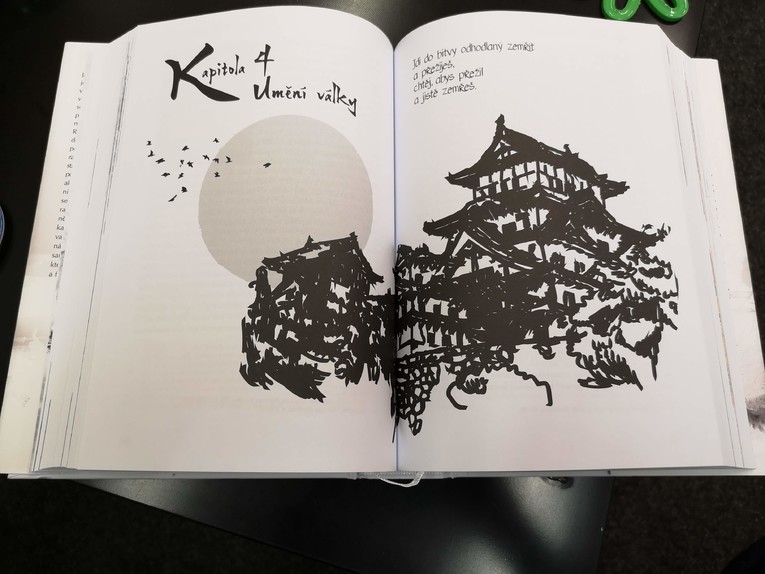 Kapitola 4
Umění války
Jdi do bitvy odhodlaný zemřít
a přežiješ,
chtěj, abys přežil
a jistě zemřeš.